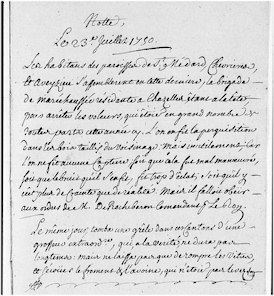 Notte.
Le 23e. Juillet 1750.
Les habitans des paroisses de St. Médard, Chevrieres
et Aveyzieu s'assemblerent en cette derniere, la brigade
de maréchaussée résidente a Chazelles étant a la tête
pour arrêter les voleurs, qui étoit en grand nombre
toutes parts cette année cy. L'on en fit la perquisition
dans les bois taillis du voisinage. Mais inutilement, car
l'on ne fit aucune Capture soit que cela fut mal manoeuvré,
soit que le bruit qu'il s'en fit, fut trop d'éclat, soit qu'il y
eut plus de crainte que de réalité. Mais il falloit obéir
aux ordres de M. De Rochebaron Comandant pr. le Roy.
Le même jour, tomba une grêle dans ces cantons d'une
grosseur extraordre., qui a la verité ne dura pas
longtems mais ne laissa pas que de rompre les vitres,
et le froment & l'avoine, qui n'étoit pas